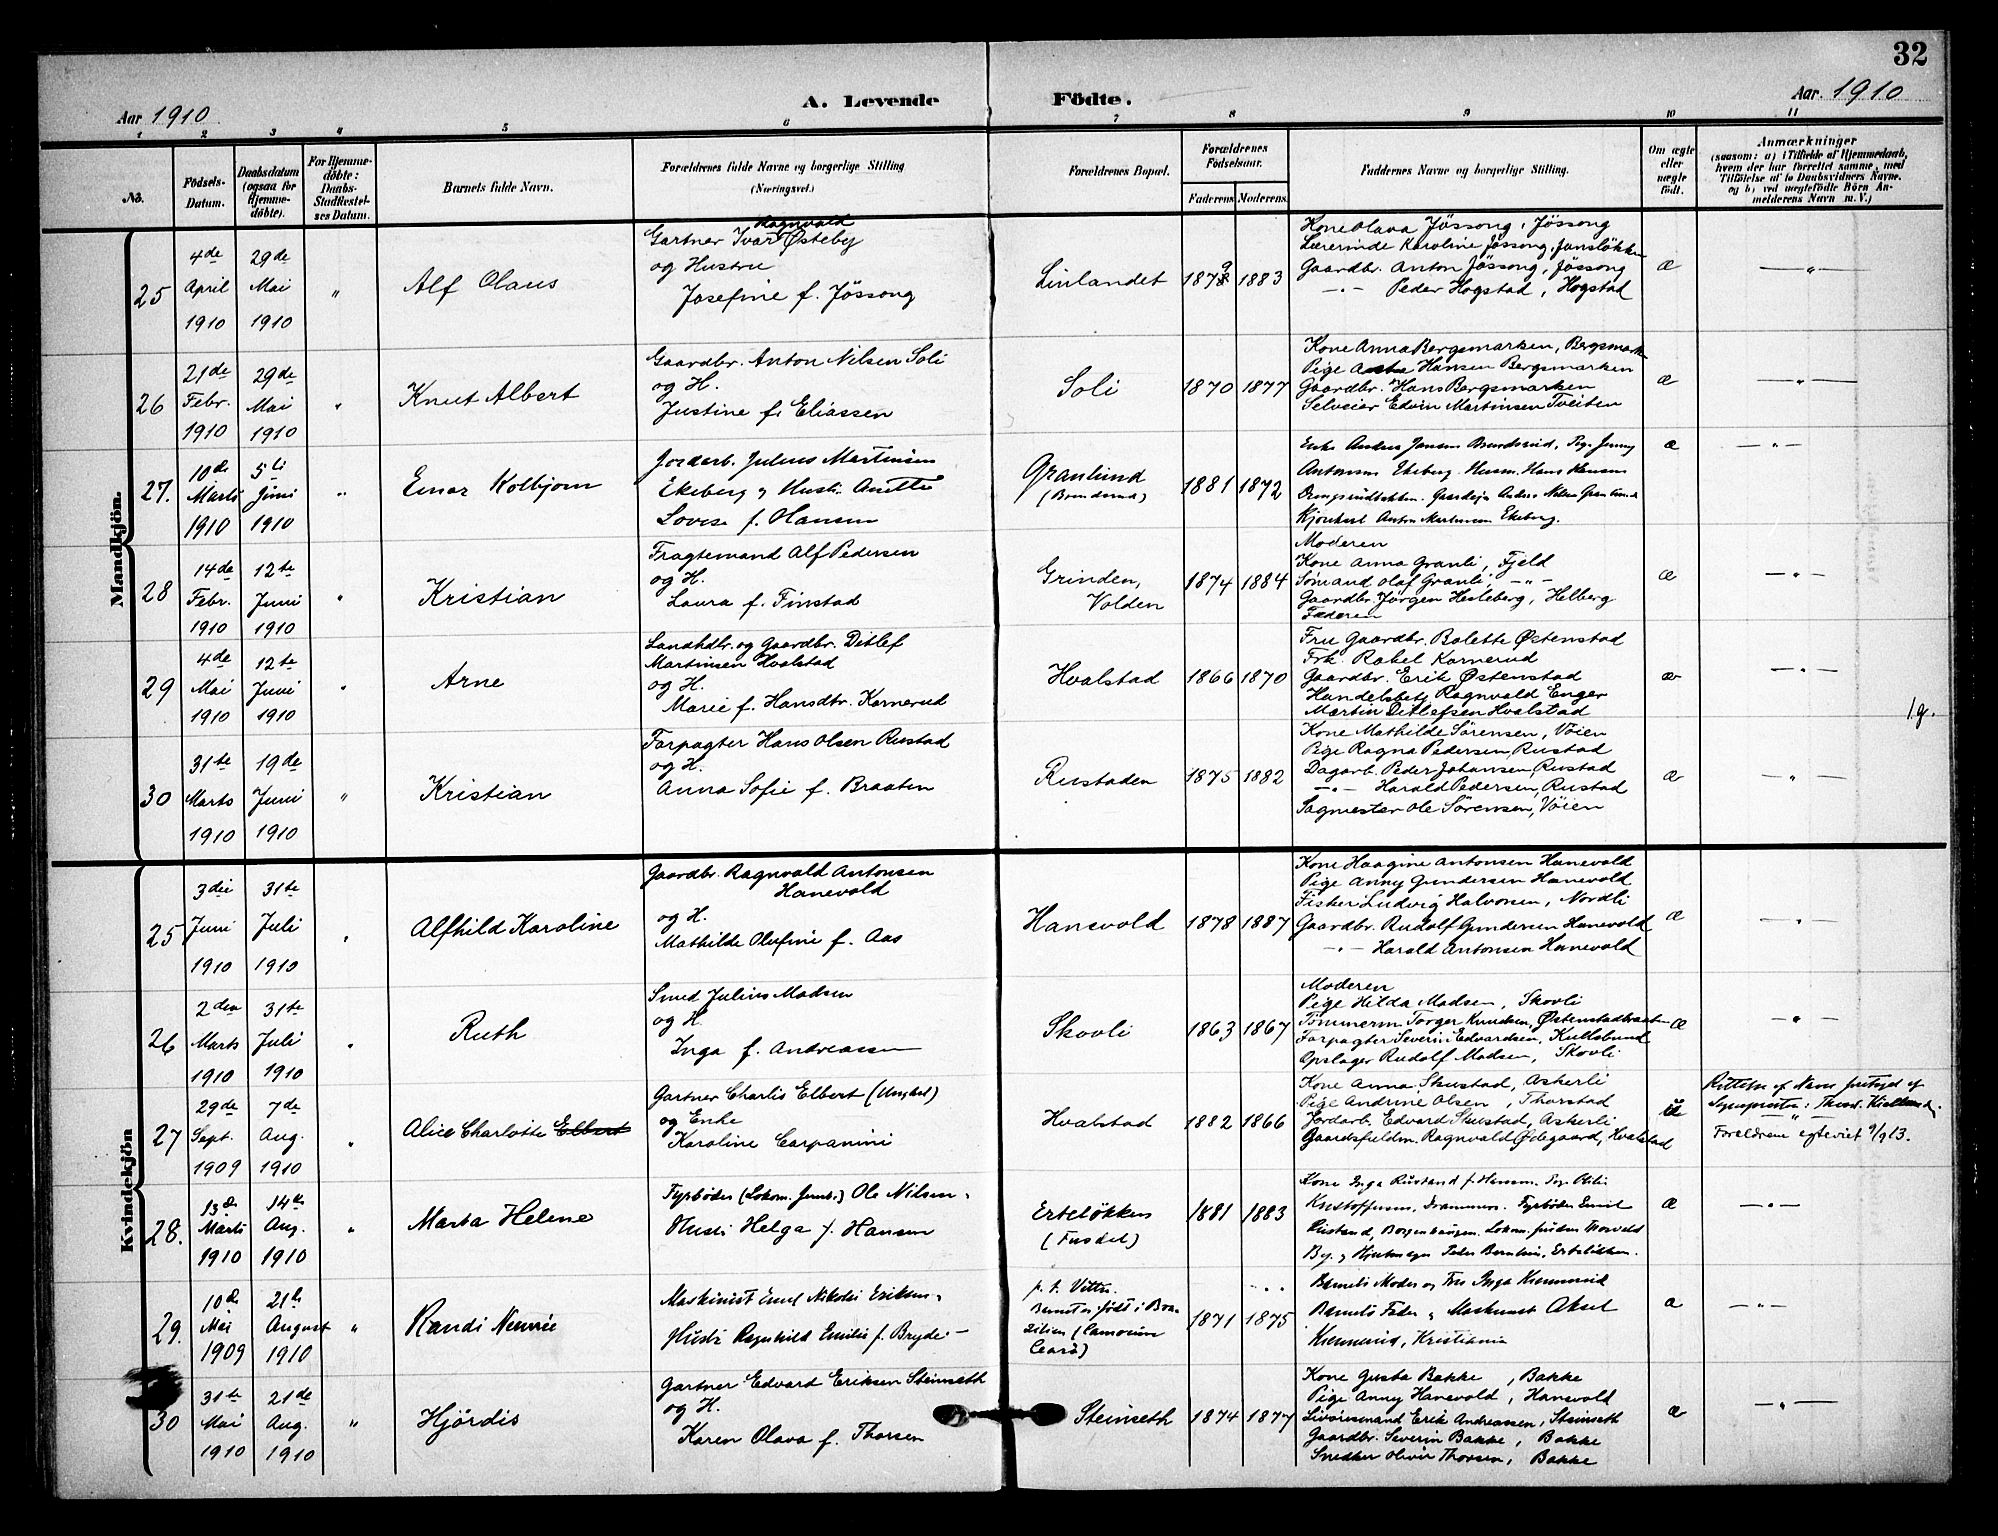 32
Aar 1910
A. Levende Födte.
Aar. 1910
1 2 3 4 5 6 7 8 9 10 11
No.
Födsels-Datum.
Daabsdatum (ogsaa for Hjemme-döbte).
For Hjemme-döbte: Daabs-Stadfæstel-ses Datum.
Barnets fulde Navn.
Forældrenes fulde Navne og borgerlige Stilling (Næringsvei.)
Forældrenes Bopæl.
Forældrenes Födselsaar.
Faderens Moderens
Faddernes Navne og borgerlige Stilling.
Om ægte eller uægte födt.
Anmærkninger
(saasom: a) i Tilfælde af Hjemmedaab, hvem der har forrettet samme, med Tilföielse af to Daabsvidners Navne, og b) ved uægtefödte Börn An-melderens Navn m. V.)
Mandkjön.
25
4de April 1910
29de Mai 1910
"
Alf Olaus
Ragnvald
Gartner Ivar Østeby
og Hustru
Josefine f. Jössong
Linlandet
1879 1883
Kone Olava Jössong, Jössong
Lærerinde Karoline Jössong, Jansløkken
Gaardbr. Anton Jössong, Jössong
-"- Peder Hogstad, Hogstad
æ
— " —
26
21de Febr. 1910
29de Mai 1910
"
Knut Albert
Gaardbr. Anton Nilsen Soli
og H.
Justine f. Eliassen
Soli
1870 1877
Kone Anna Bergsmarken, Bergsmarken
Pige Asta Hansen Bergsmarken
Gaardbr. Hans Bergsmarken
Selveier Edvin Martinsen Tveiten
æ
— " —
27.
10de Marts 1910
5te Juni 1910
"
Einar Kolbjorn
Jordarb. Julius Martinsen
Ekeberg og Hust. Anette
Lovise f. Hansen
Granlund
1881 1872
Enke Andrea Jansen Pige Jenny
Antonsen Ekeberg. Husm. Hans Hansen
Gaardeja Anders Nilsen
Anton Martinsen Ekeberg.
æ
— " —
28
14de Febr. 1910
12te Juni 1910
"
Kristian
Fragtemand Alf Pedersen
og H.
Laura f. Finstad
Grinden,
Volden
1874 1884
Moderen
Kone Anna Granli, Fjeld
Sömand Olaf Granli, -"-
Gaardbr. Jörgen Hesleberg, Helberg
Faderen
æ
— " —
29
4de Mai 1910
12te Juni 1910
"
Arne
Landhdlr. og Gaardbr. Ditlef
Martinsen Hvalstad
og H.
Marie f. Hansdtr. Kornerud
Hvalstad
1866 1870
Fru Gaardbr. Bolette Østenstad
Frk. Rakel Kornerud
Gaardbr. Erik Østenstad
Handelsbetj. Ragnvald Enger
Martin Ditlefsen Hvalstad
æ
— " —
1g.
30
31te Marts 1910
19de Juni 1910
"
Kristian
Forpagter Hans Olsen Rustad
og H.
Anna Sofie f. Braaten
Rustaden
1875 1882
Kone Mathilde Sörensen, Vöien
Pige Ragna Pedersen, Rustad
Dagarb. Peder Johansen, Rustad
-"- Harald Pedersen, Rustad
Sagmester Ole Sörensen, Vöien
æ
— " —
Kvindekjön
25
3die Juni 1910
31te Juli 1910
"
Alfhild Karoline
Gaardbr. Ragnvald Antonsen
Hanevold
og H.
Mathilde Olufine f. Aas
Hanevold
1878 1887
Kone Haagine Antonsen Hanevold
Pige Anny Gundersen Hanevold
Fisker Ludvig Halvorsen, Nordli
Gaardbr. Rudolf Gundersen Hanevold
-"- Harald Antonsen Hanevold
æ
— " —
26
2den Marts 1910
31te Juli 1910
"
Ruth
Smed Julius Madsen
og H.
Inga f. Andreassen
Skovli
1863 1867
Moderen
Pige Hilda Madsen, Skovli
Tömmerm. Torger Knudsen, Østenstadbraaten
Forpagter Severin Edvardsen,
Opslager Rudolf Madsen, Skovli
æ
— " —
27
29de Sept. 1909
7de Aug. 1910
"
Alice Charlotte Elbert
Gartner Charlis Elbert (Ungkarl)
og Enke
Karoline Carpanini
Hvalstad
1882 1866
Kone Anna Skustad, Askerli
Pige Andrine Olsen, Thorstad
Jordarb. Edvard Skustad, Askerli
Gaardsfuldm. Ragnvald Ødegaard, Hvalstad
Rettelse af Navn
Sognepresten: Theod. Kielland.
Forældrene egteviet 9/9 13.
28.
13de Marts 1910
14de Aug. 1910
"
Marta Helene
Fyrböder (Lokom. Jernb.) Ole Nilsen.
Hustr. Helga f. Hansen
Erteløkken
(Fusdal)
1881 1883
Kone Inga Rustand f. Hansen. Pige
Kristoffersen, Drammen. Fyrböder Emil
Rustand, Borgenhaugen. Lokom.
Peder Erteløkken.
æ
— " —
29.
10de Mai 1909
21de August 1910
"
Randi
Maskinist Emil Nikolai Eriksen.
Hustr. Ragnhild Emilie f. Bryde.
p. t. Vettre.
Barnet er født i Bra-
zilien (Camocim
Ceará)
1871 1875
Barnets Moder og Fru Inga
Barnets Fader og Maskinist Aksel
Kristiania
æ
— " —
30
31te Mai 1910
21de Aug. 1910
"
Hjördis
Gartner Edvard Eriksen Steinseth
og H.
Karen Olava f. Thorsen
Steinseth
1874 1877
Kone Gusta Bakke, Bakke
Pige Anny Hanevold, Hanevold
Livöresmand Erik Andreassen, Steinseth
Gaardbr. Severin Bakke, Bakke
Snedker Oliver Thorsen, Bakke
æ
— " —